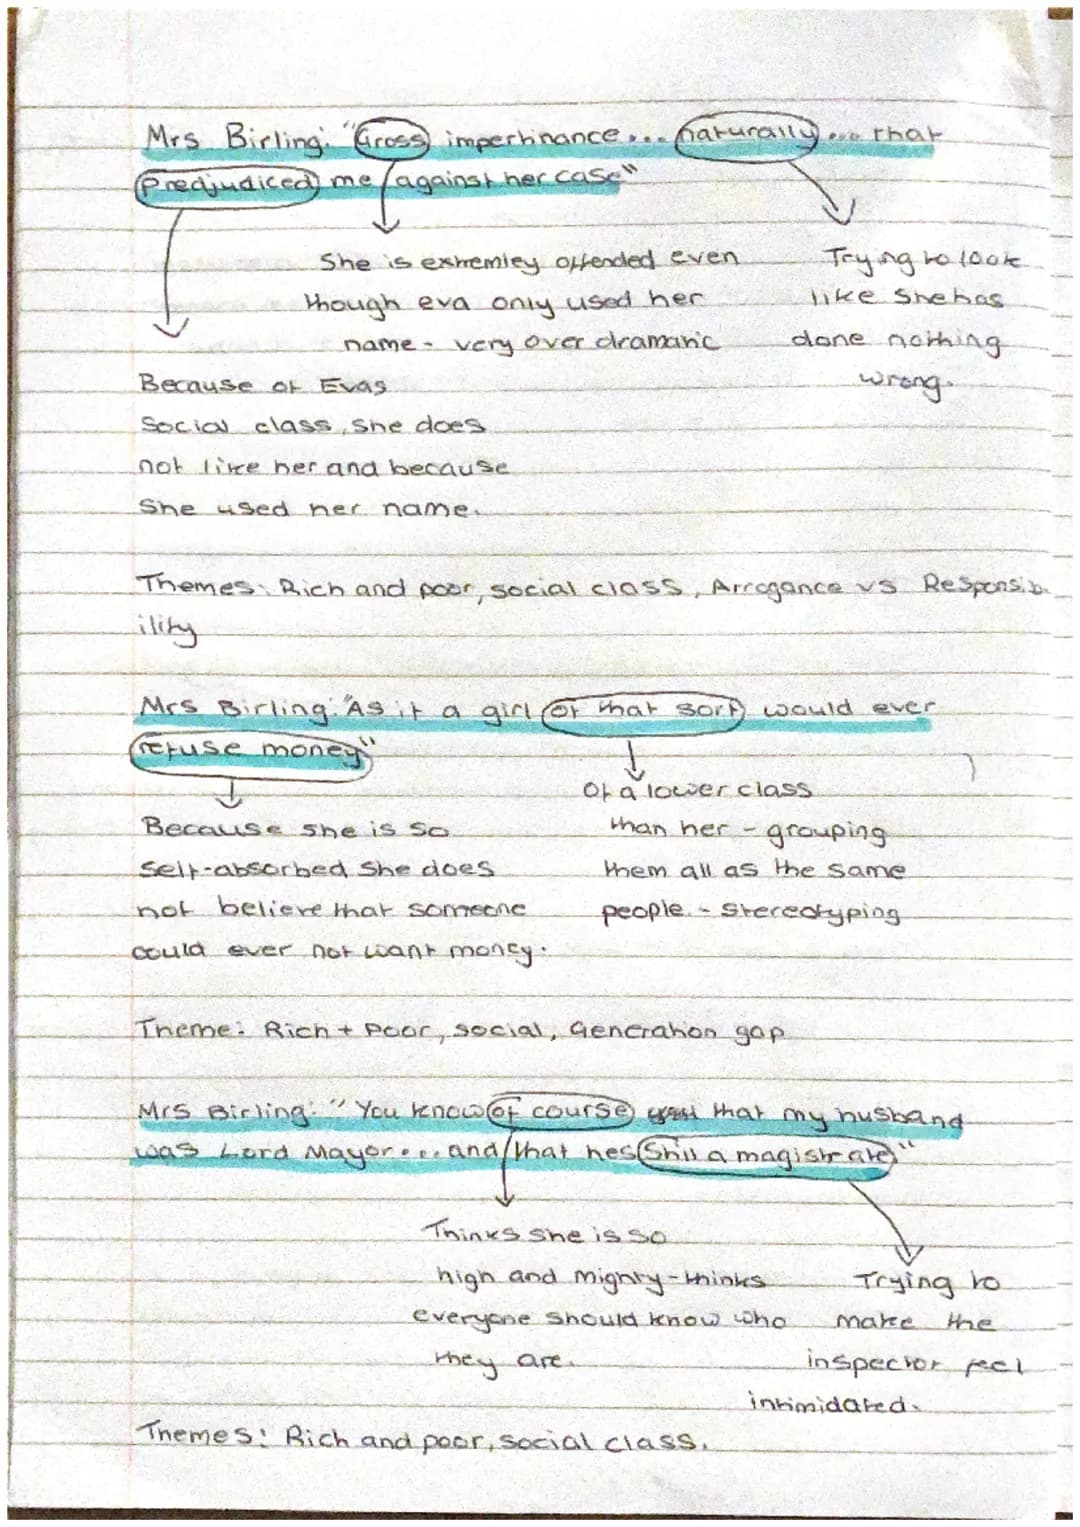 Mrs Birling: "Gross impertinance... naturally... that
predjudiced me against her case"
She is extremley offended even
though eva only used her
name - very over dramatic
Trying to look
like she has
done nothing
wrong.
Because of Evas
Social class, she does
not like her and because
She used her name.
Themes: Rich and poor, social class, Arrogance vs Responsib-
ility
Mrs Birling: "As if a girl of that sort would ever
refuse money"
Because she is so
self-absorbed she does
not believe that someone
could ever not want money.
Of a lower class
than her - grouping
them all as the same
people. - Stereotyping
Theme: Rich + Poor, social, Generation gap
Mrs Birling: "You know of course that my husband
was Lord Mayor... and that hes still a magistrate"
Thinks she is so
high and mighty - thinks
everyone should know who
they are.
Trying to
make the
inspector feel
intimidated.
Themes: Rich and poor, social class.